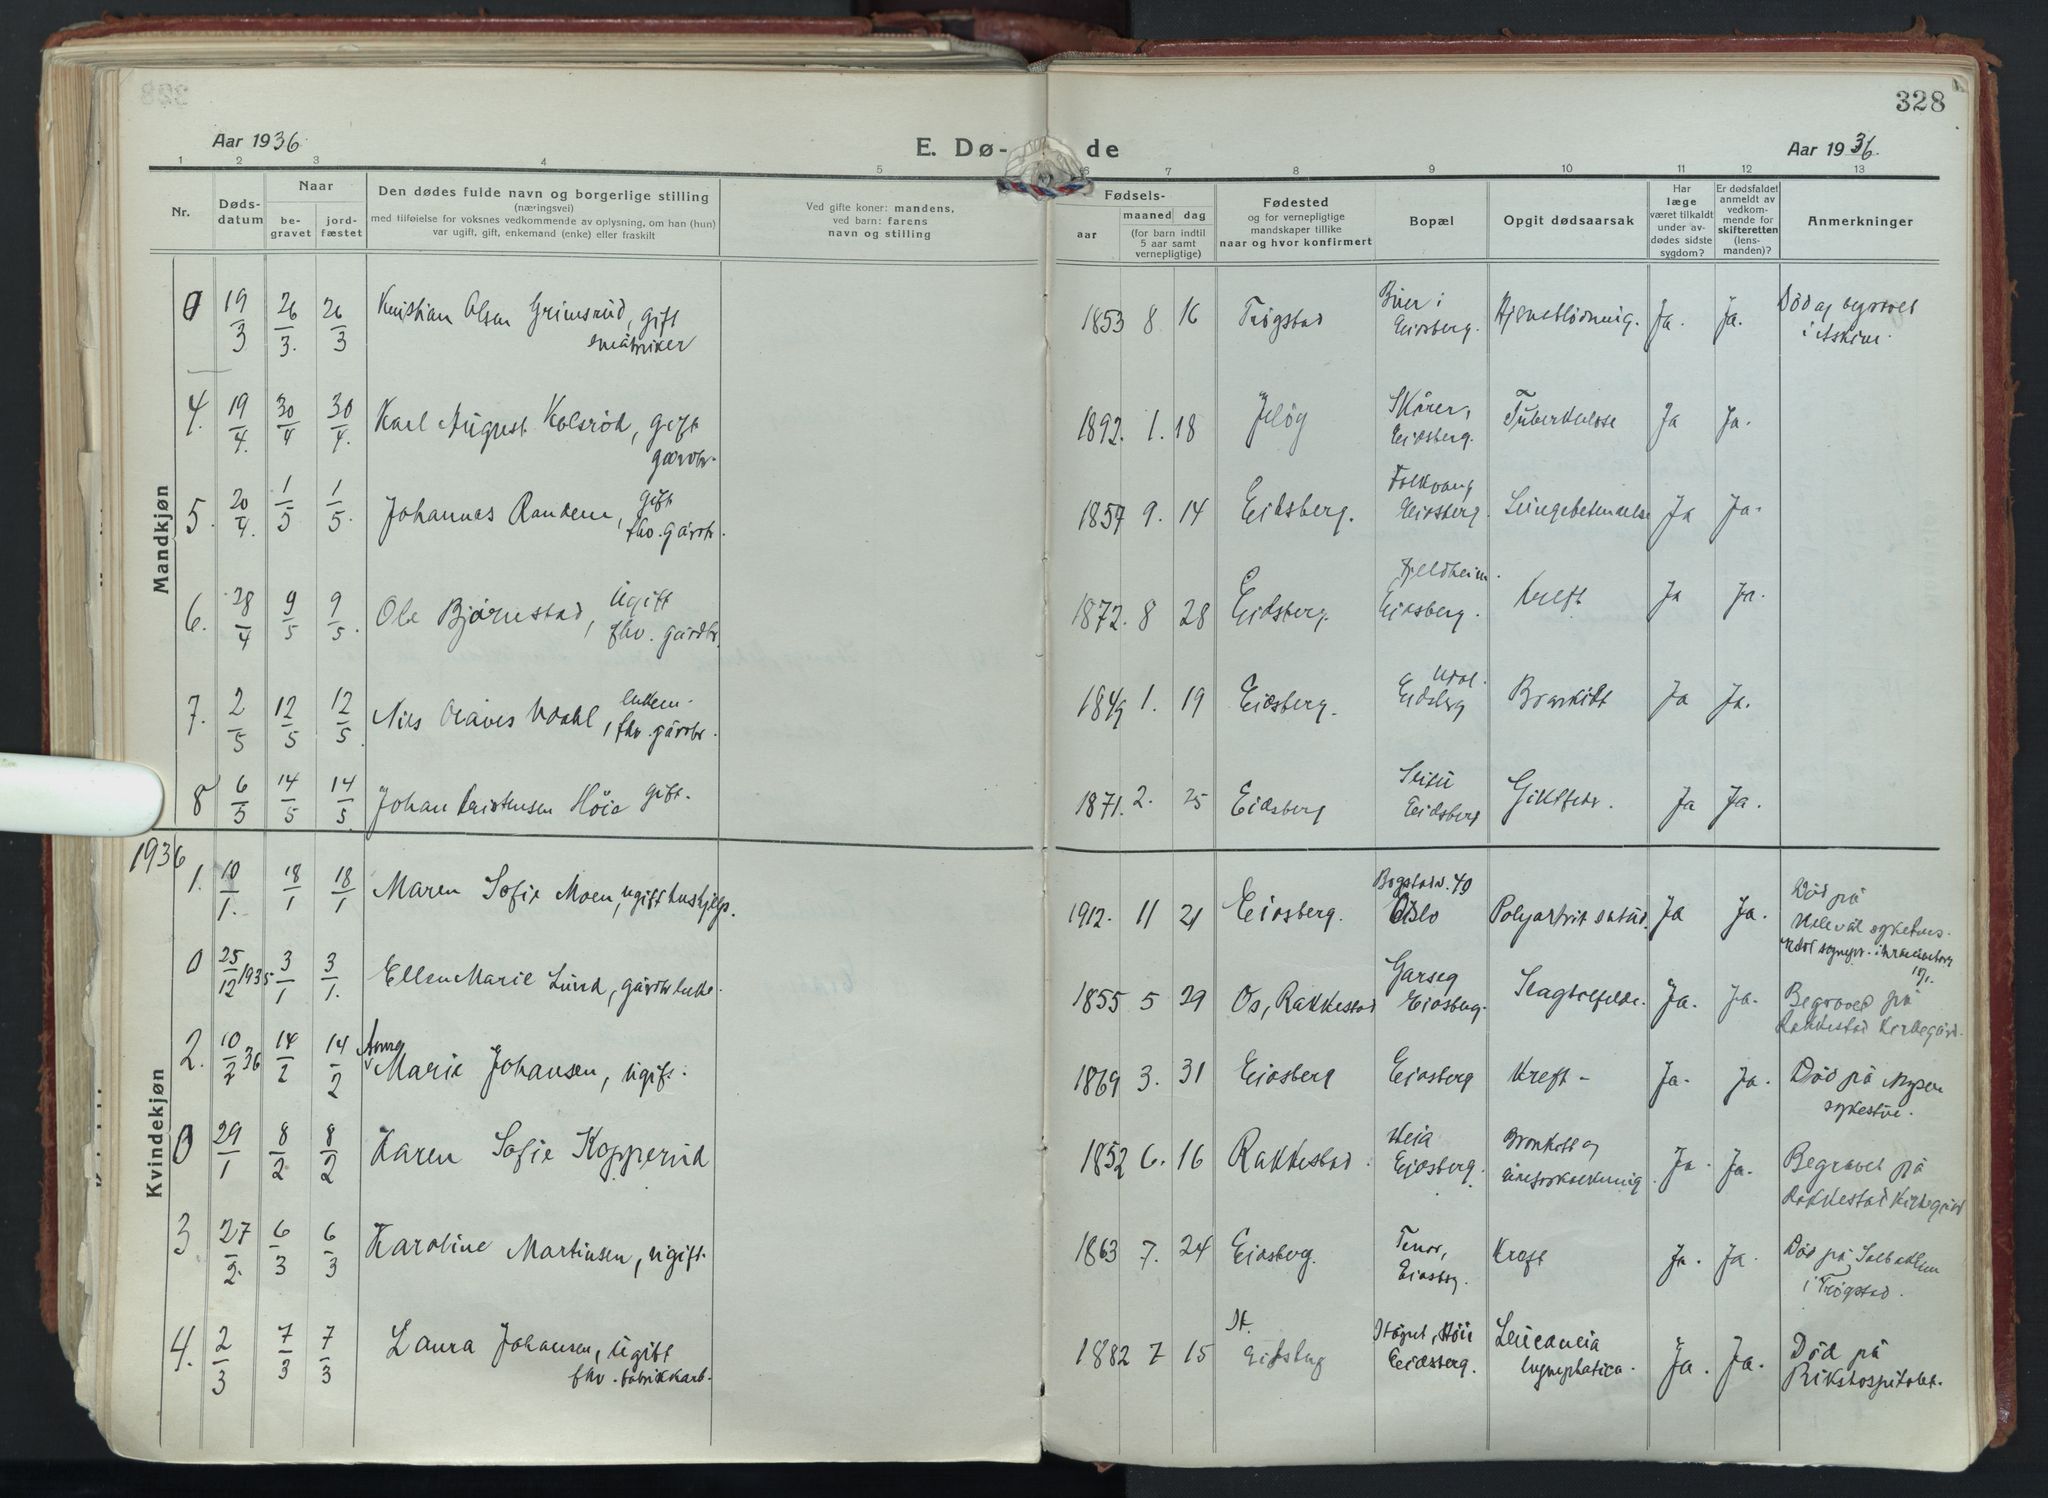 328
Aar 1936
E. Dø-
de
Aar 1936.
1 2 3 4 5 6 7 8 9 10 11 12 13
Nr.
Døds-
datum
Naar
be-
gravet
jord-
fæstet
Den dødes fulde navn og borgerlige stilling
(næringsvei)
med tilføielse for voksnes vedkommende av oplysning, om han (hun)
var ugift, gift, enkemand (enke) eller fraskilt
Ved gifte koner: mandens,
ved barn: farens
navn og stilling
Fødsels-
aar
maaned dag
(for barn indtil
5 aar samt
vernepligtige)
Fødested
og for vernepligtige
mandskaper tillike
naar og hvor konfirmert
Bopæl
Opgit dødsaarsak
Har
læge
været tilkaldt
under av-
dødes sidste
sygdom?
Er dødsfaldet
anmeldt av
vedkom-
mende for
skifteretten
(lens-
manden)?
Anmerkninger
Mandkjøn
0 19/3 26/3. 26/3 Kristian Olsen Grimsrud, gift
småbruker
1853 8. 16 Trøgstad
i
Eidsberg. Hjerneblødning. Ja. Ja. Død og begravet
i Askim.
4. 19/4. 30/4 30/4. Karl August Kolsrød, gift
gårdbr.
1892. 1. 18
Skårer,
Eidsberg. Tuberkulose Ja Ja.
5. 20/4. 1/5 1/5. Johannes Randem, gift
fhv. gårdbr.
1857 9. 14 Eidsberg.
Folkvang
Eidsberg. Lungebetendelse Ja Ja.
6. 28/4 9/5 9/5. Ole Bjørnestad, ugift
fhv. gårdbr.
1872. 8 28 Eidsberg.
Fjeldheim.
Eidsberg. Kreft Ja Ja.
7. 2/5 12/5 12/5. Nils Olaves Udahl, enkem.
fhv. gårdbr.
1849 1. 19 Eidsberg.
Eidsberg Bronkitt Ja Ja.
8 6/5 14/5 14/5. Johan Kristensen Høie gift.
1871. 2. 25 Eidsberg
Eidsberg Giktfeber. Ja Ja.
1936
Kvindekjøn
1. 10/1. 18/1 18/1 Maren Sofie Moen, ugift hushjelp.
1912. 11 21 Eidsberg.
Bogstadv. 40
Oslo Ja Ja. Død på
Ullevål sykehus.
0 25/12 1935 3/1 3/1. Ellen Marie Lund, gårdbr.enke.
1855 5 29 Os, Rakkestad
Garseg
Eidsberg. Slagtilfelde. Ja. Ja. Begravet på
Rakkestad Kirkegård.
2. 10/2 36 14/2 14/2 Anna
Marie Johansen, ugift.
1869 3. 31 Eidsberg Eidsberg Kreft - Ja. Ja. Død på Mysen
sykestue.
0 29/1 8/2 8/2 Karen Sofie Kopperud
1852 6. 16 Rakkestad.
Heia
Eidsberg. Bronkitt og
åreforkalkning. Ja. Ja. Begravet på
Rakkestad Kirkegård
3 27/2. 6/3 6/3 Karoline Martinsen, ugift.
1863 7. 24 Eidsberg.
Tenor,
Eidsberg. Kreft Ja. Ja. Død på
i Trøgstad.
4. 2/3 7/3 7/3 Laura Johansen, ugift
fhv. fabrikkarb.
1882 7 15
Eidsberg
Høie
Eidsberg. Leucaneia
lymphatica. Ja. Ja. Død på
Rikshospitalet.